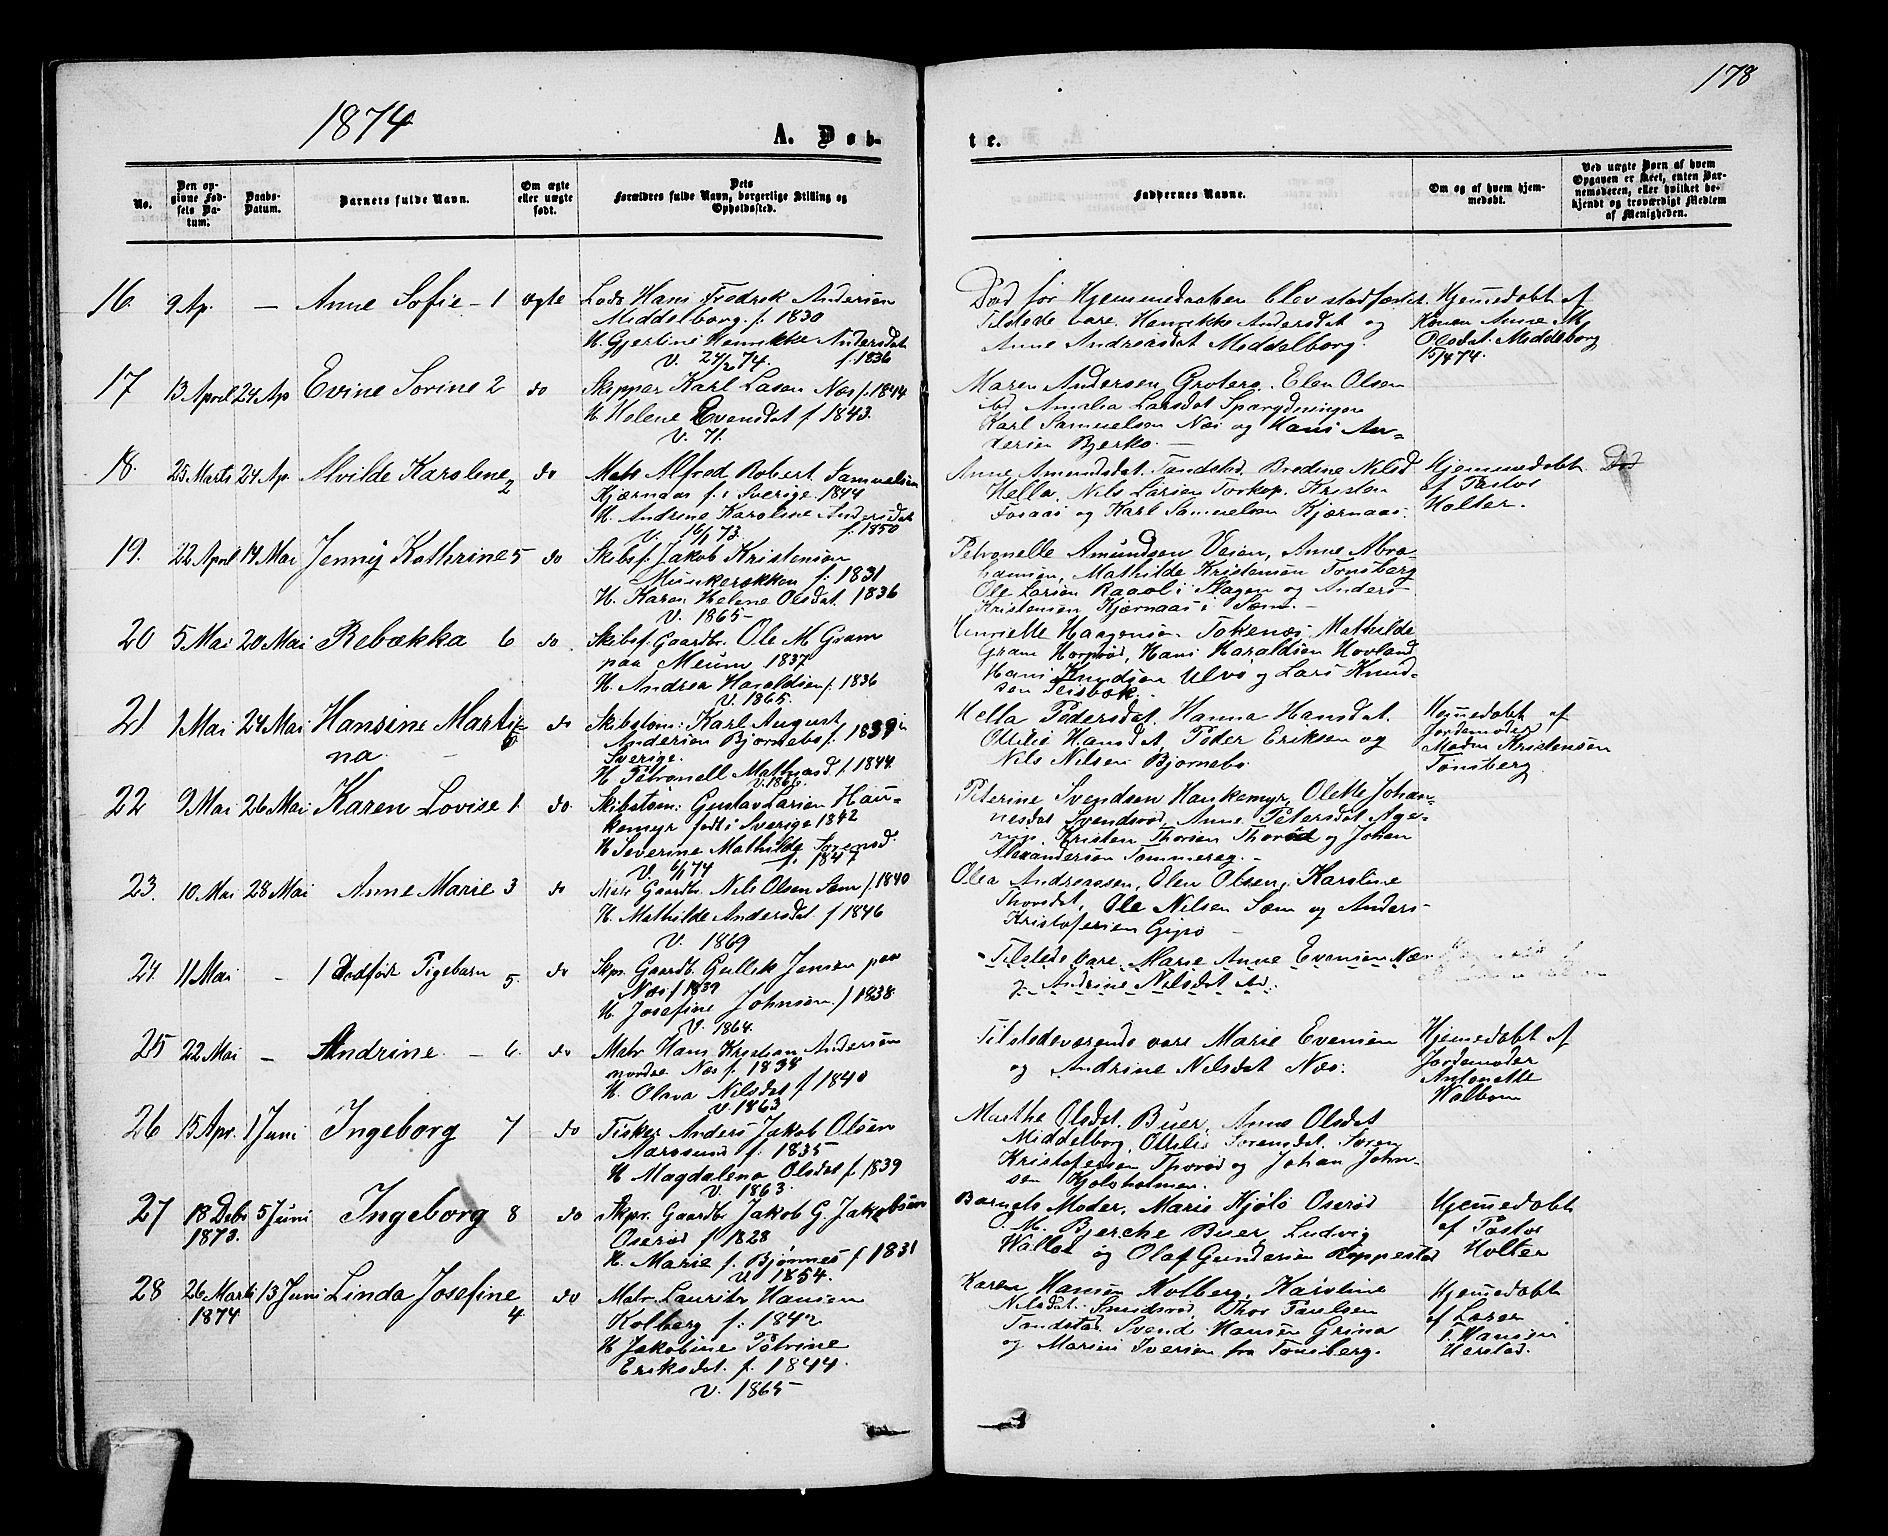 1874
A. Døb-
te.
178
No.
Den opgivne Fødsels Datum.
Daabs-Datum.
Barnets fulde Navn.
Om ægte eller uægte født.
Dets Forældres fulde Navn, borgerlige Stilling og Opholdssted.
Faddernes Navne.
Om og af hvem hjemmedøbt.
Ved uægte Børn af hvem Opgaven er skeet, enten Barnemoderen, eller hvilket bekjendt og troværdigt Medlem af Menigheden.
16. 9 Ap. — Anne Sofie - 1 ægte Lods Hans Fredrek Andersen
Middelborg. f. 1830
H. Gjertine Henrikke Andersdat
V. 24/2 74. f. 1836
Død før Hjemmedaaben blev stadfæstet.
Tilstede vare. Henrikke Andersdat og
Anne Andreasdat Middelborg.
Hjemmedøbt af
Konen Anne M.
Olsdat. Middelborg
15/4 74.
17 13 April 24 Ap Evine Sorine 2 do Skipper Karl Lasen Næs f. 1844
H Helene Evensdat f 1843.
V. 71.
Maren Andersen Groters. Elen Olsen
ibd Amalia Larsdat
Karl Samuelsen Næs og Hans An=
dersen Bjerkø. —
18. 25 Marts 24 Ap. Alvilde Karolene 2 do Matr Alfred Robert Samuelsen
Kjærnaas f. i Sverige 1844
H. Andrine Karoline Andersdat
V. 16/1 73. f. 1850
Anne Amundsdat. Tandstad. Bredine Nilsd
Hella, Nils Larsen Torkop. Kristen
Fosaas og Karl Samuelsen Kjærnaas.
Hjemmedøbt
af Pastor
Holter.
Død
19. 22 April 14 Mai Jenny Kathrine 5 do Skibsf. Jakob Kristensen
Munkerekken f: 1831
H. Karen Helene Olsdat. 1836
V. 1865-
Petronelle Amundsen Veien, Anne Abra-
hamsen, Mathilde Kristensen Tønsberg
Ole Larsen Raael i Slagen og Anders
Kristensen Kjærnaas i Sæm. -
20 5 Mai 20 Mai Rebækka 6 do Skibsf. Gaardbr. Ole M Gram
paa Meum 1837
H. Andrea Haraldsen f. 1836
V. 1865.
Henriette Haagensen Tokenæs Mathilde
Gram Horprød, Hans Haraldsen Hovland
Hans Knudsen Ulvø og Lars Knud-
sen Feisbæk.
21 1 Mai 24 Mai Hansine Marti-
na. 6 do Skibstøm: Karl August
Andersen Bjørnebo f. 1839 i
Sverige.
H Petronell Mathiasd f. 1844.
V. 1866.
Hella Pedersdat. Hanna Hansdat.
Ottilie Hansdat, Peder Eriksen og
Nils Nilsen Bjørnebo
Hjemmedøbt af
Jordemoder
Madm Kristensen
Tønsberg.
22 9 Mai 26 Mai Karen Lovise 1. do Skibstøm: Gustav Larsen Hau-
kemyr født i Sverige 1842
H Severine Mathilde Sorensd.
V. 6/1 74 f. 1847
Peterine Svendsen Haukemyr, Olette Johan-
nesdat Svendsrød, Anne Petersdat Age-
rup. Kristen Thorsen Thorød og Johan
Alexandersen Tommereg. -
23. 10 Mai 28 Mai Anne Marie 3 do Mats Gaardbr. Nils Olsen Sæm f. 1840
H. Mathilde Andersdat. f 1846
V. 1869
Olea Andreassen, Elen Olsen, Karoline
Thorsdat, Ole Nilsen Sæm og Anders
Kristofersen Gipø —
24 11 Mai - 1 Dødfødt Pigebarn 5. do Skpr. Gaardb. Gullik Jensen paa
Næs f 1839
H. Josefine Johnsen f 1838
V. 1864.
Tilstede vare. Marie Anne Evensen Næs
og Andrine Nilsdat ibd.
25 22 Mai - Andrine. - 6. do Matr. Hans Kristian Andersen
nordre Næs f. 1834
H. Olava Nilsdat f 1840
V. 1863
Tilstedeværende vare Marie Evensen
og Andrine Nilsdat Næs.
Hjemmedøbt af
Jordemoder
Antonette
Walbom
26 15 Apr. 1 Juni Ingeborg 7 do Fisker Anders Jakob Olsen
Aarøsund f. 1835
H Magdalena Olsdat f. 1839
V. 1863.
Marthe Olsdat. Buer, Anne Olsdat
Middelborg, Ottilie Sorensdat. Soren
Kristofersen Thorød og Johan John-
sen Kjolsholmen.
27 18 Debr 1873. 5 Juni Ingeborg 8 do Skpr. Gaardbr Jakob G. Jakobsen
Oserød f 1828
H. Marie f. Bjønnes f 1831
V. 1854.
Barnets Moder, Marie Hjølø Oserød
O. M. Bjerche Buer, Ludvig
Walløe og Olaf Gundersen Roppestad
Hjemmedøbt
af Pastor
Holter
28 26 Marts 1874 13 Juni Linda Josefine 4 do Matr. Lauritz Hansen
Kolberg f: 1842
H Jakobine Petrine
Eriksdat. f. 1844.
V. 1865
Karen Hansen Kolberg, Karoline
Nilsdat. Smidsrød, Thor Paulsen
Tandstad. Svend Hansen Grina
og Marius Iversen fra Tønsberg.
Hjemmedøbt
af Lærer
T. Hansen
Herstad.